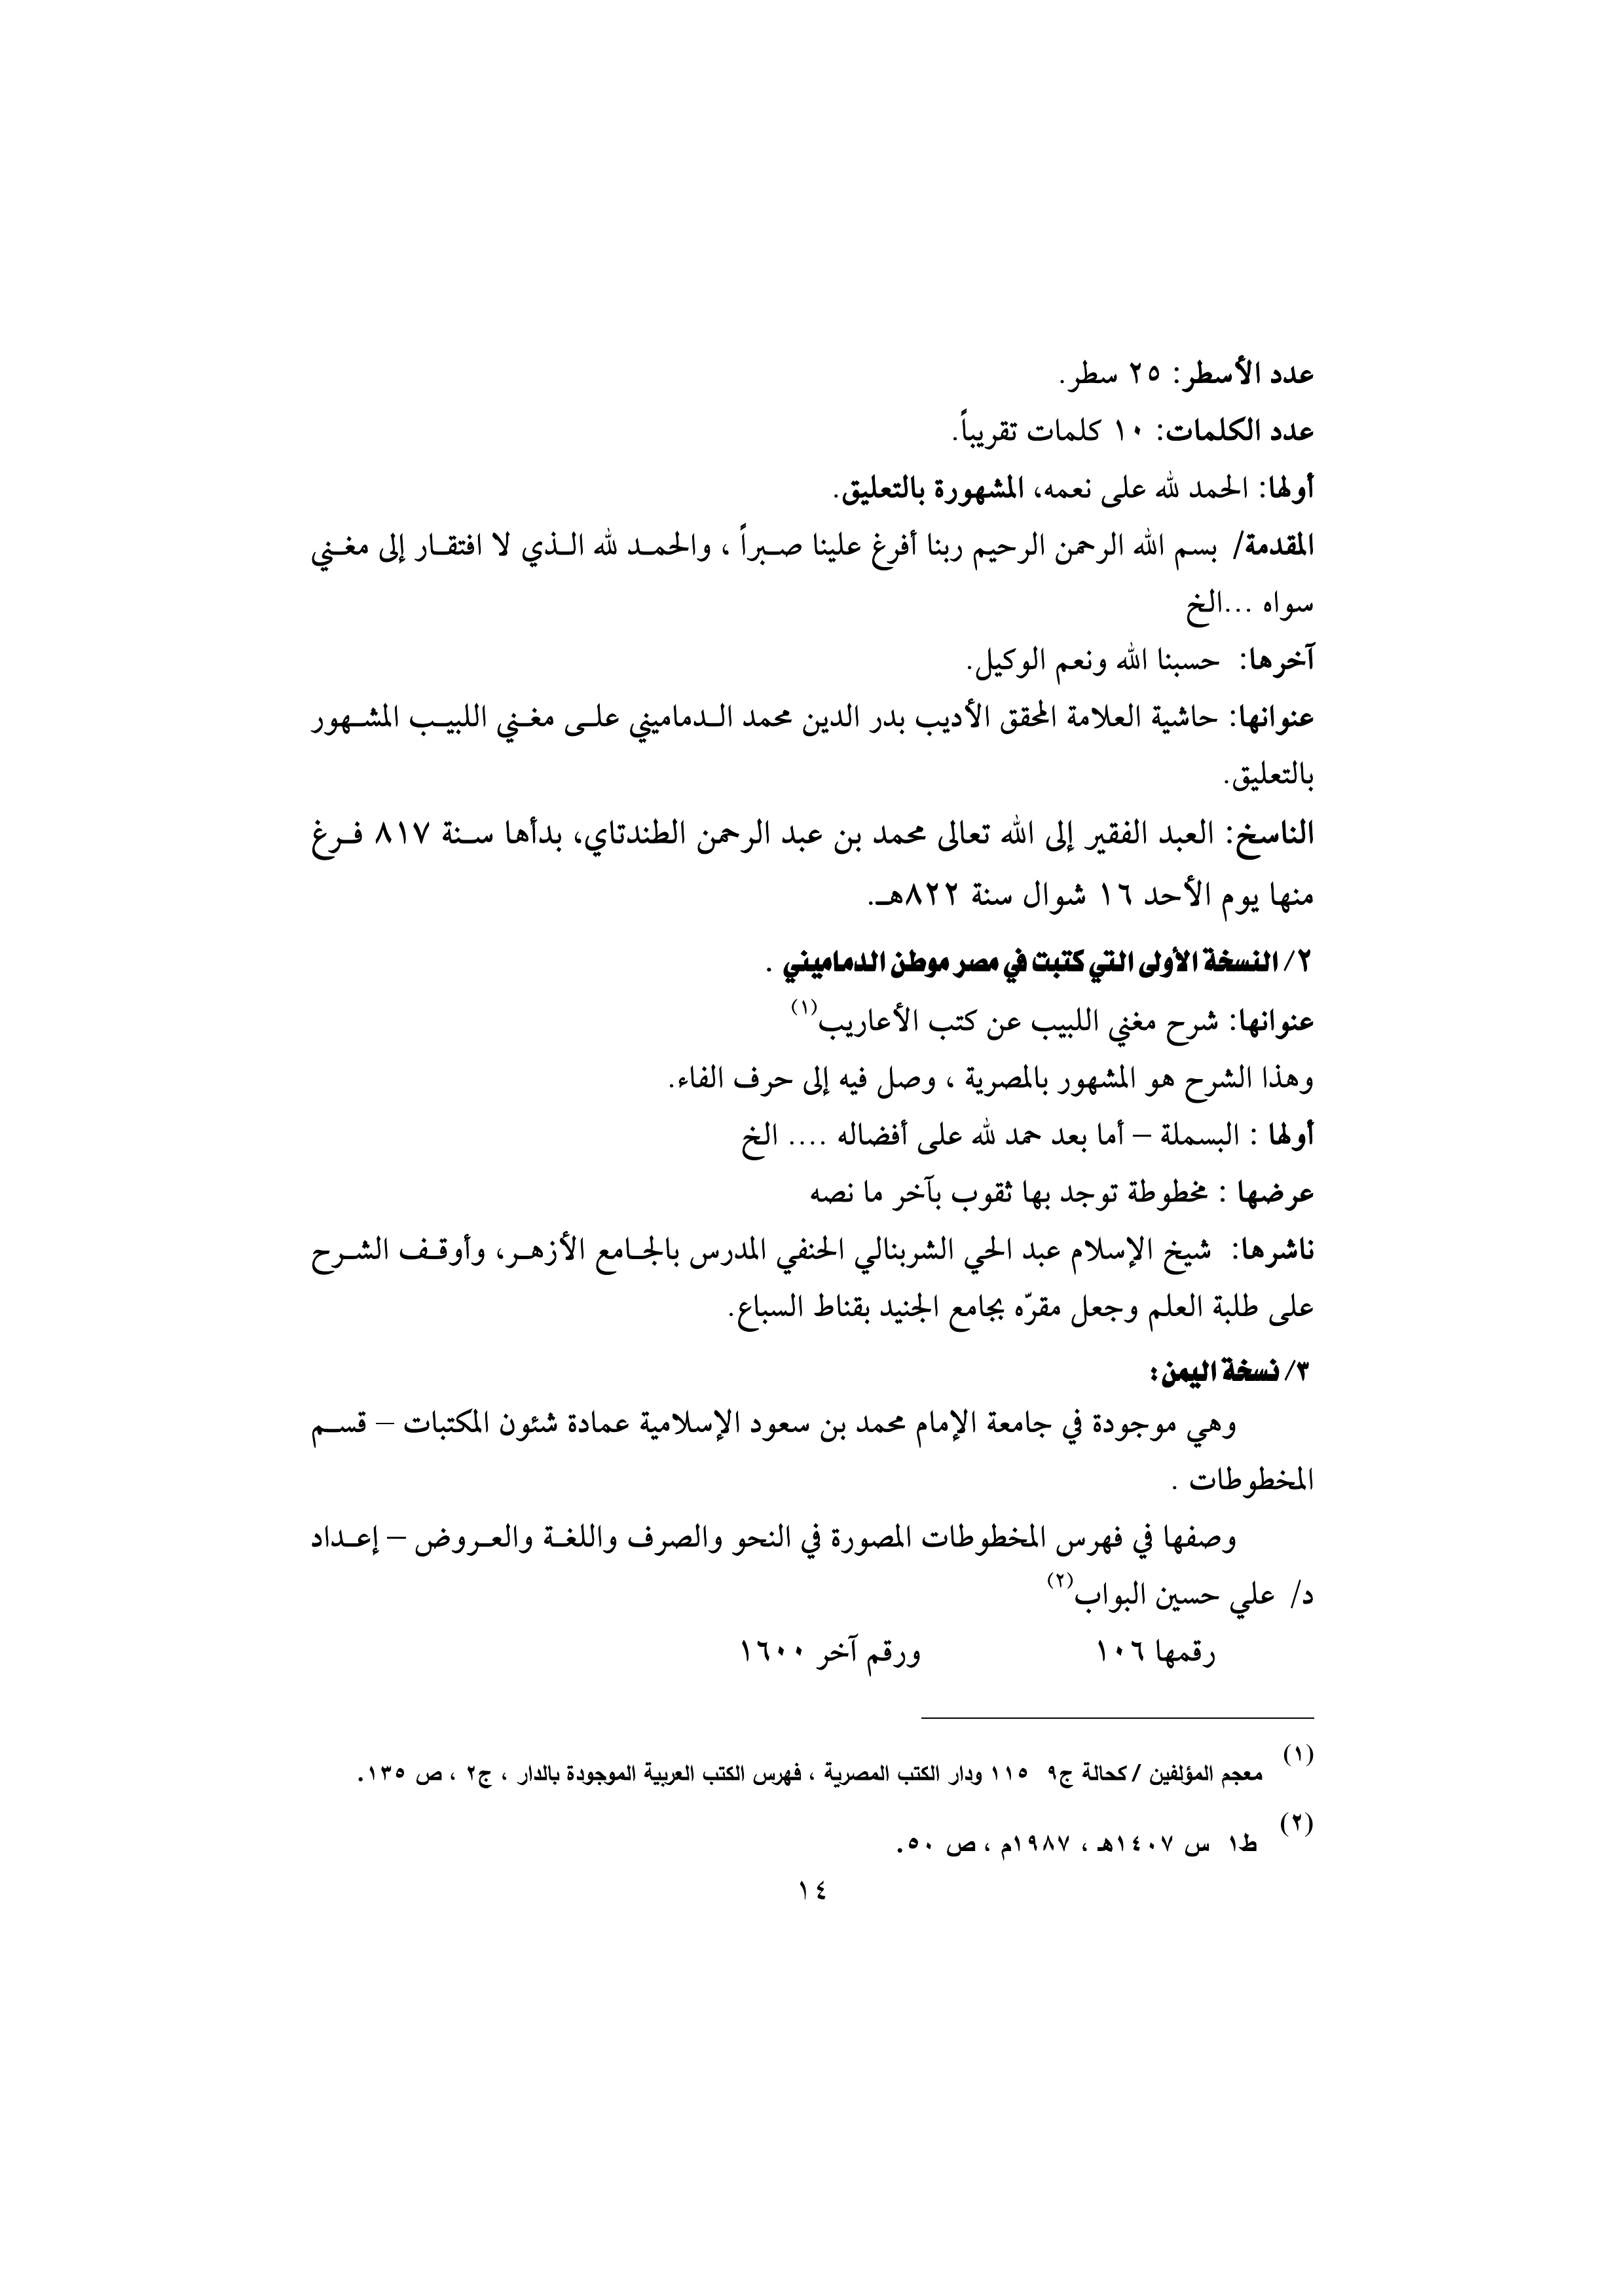 عدد الأسطر: ٢٥ سطر.
عدد الكلمات: ١٠ كلمات تقريباً.
أولها: الحمد لله على نعمه، المشهورة بالتعليق.
المقدمة/ بسم الله الرحمن الرحيم ربنا أفرغ علينا صبراً ، والحمد لله الذي لا افتقار إلى مغني
سواه ...الخ
آخرها: حسبنا الله ونعم الوكيل.
عنوانها: حاشية العلامة المحقق الأديب بدر الدين محمد الدماميني على مغني اللبيب المشهور
بالتعليق.
الناسخ: العبد الفقير إلى الله تعالى محمد بن عبد الرحمن الطندتاي، بدأها سنة ٨١٧ فرغ
منها يوم الأحد ١٦ شوال سنة ٨٢٢هـ.
٢/ النسخة الأولى التي كتبت في مصر موطن الدماميني .
عنوانها: شرح مغني اللبيب عن كتب الأعاريب(١)
وهذا الشرح هو المشهور بالمصرية ، وصل فيه إلى حرف الفاء.
أولها : البسملة – أما بعد حمد لله على أفضاله .... الخ
عرضها : مخطوطة توجد بها ثقوب بآخر ما نصه
ناشرها: شيخ الإسلام عبد الحي الشربنالي الحنفي المدرس بالجامع الأزهر، وأوقف الشرح
على طلبة العلم وجعل مقرّه بجامع الجنيد بقناط السباع.
٣/ نسخة اليمن:
وهي موجودة في جامعة الإمام محمد بن سعود الإسلامية عمادة شئون المكتبات – قسم
المخطوطات .
وصفها في فهرس المخطوطات المصورة في النحو والصرف واللغة والعروض – إعداد
د/ علي حسين البواب(٢)
رقمها ١٠٦ ورقم آخر ١٦٠٠
(١) معجم المؤلفين / كحالة ج٩ ١١٥ ودار الكتب المصرية ، فهرس الكتب العربية الموجودة بالدار ، ج٢ ، ص ١٣٥.
(٢) ط١ س ١٤٠٧هـ ، ١٩٨٧م ، ص ٥٠.
١٤